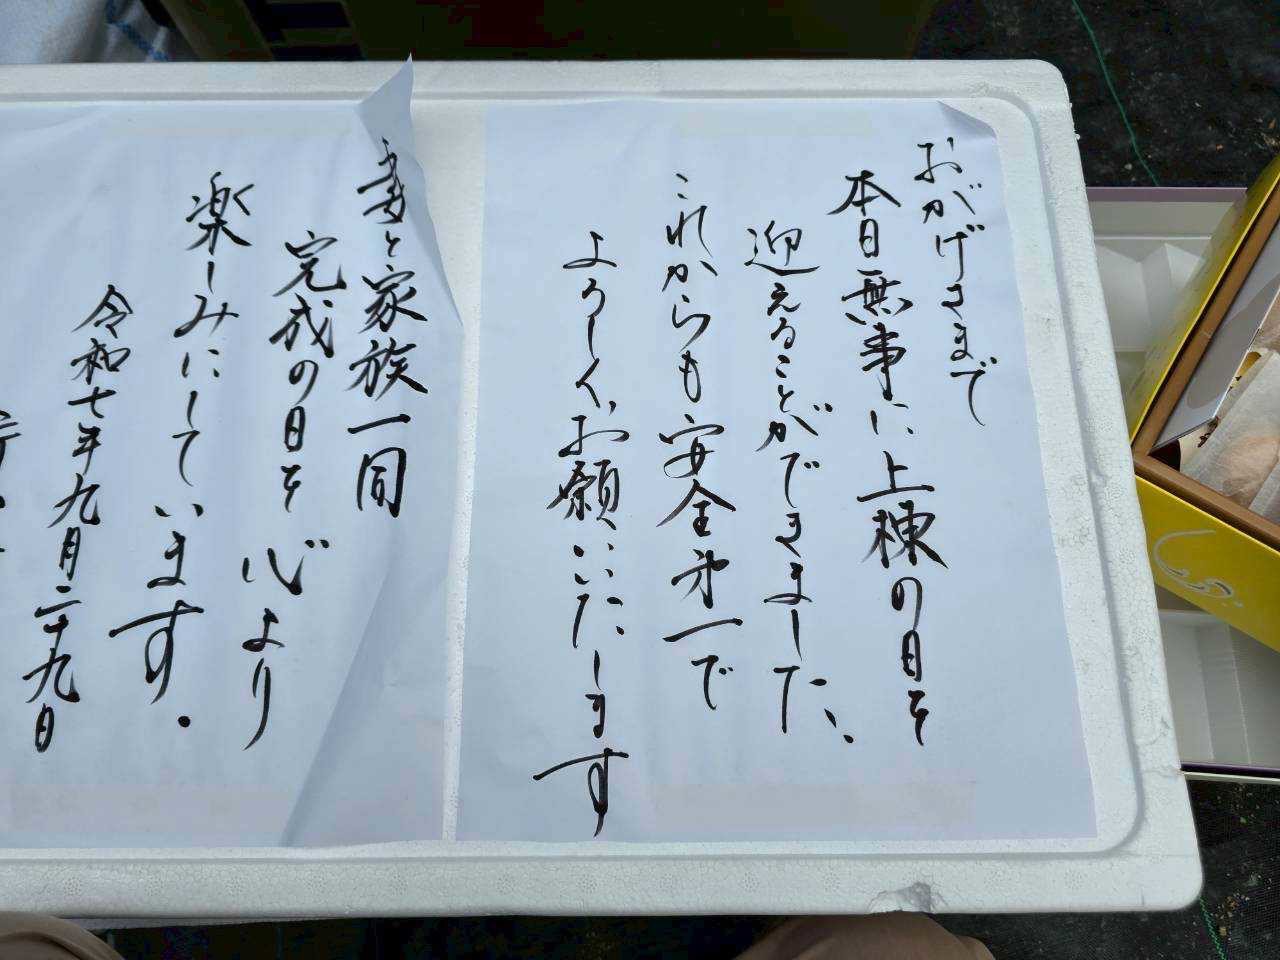 おかげさまで
本日無事に上棟の日を
迎えることができました、
これからも安全第一で
よろしくお願いいたします
妻と家族一同
完成の日を心より
楽しみにしています.
令和七年九月二十九日